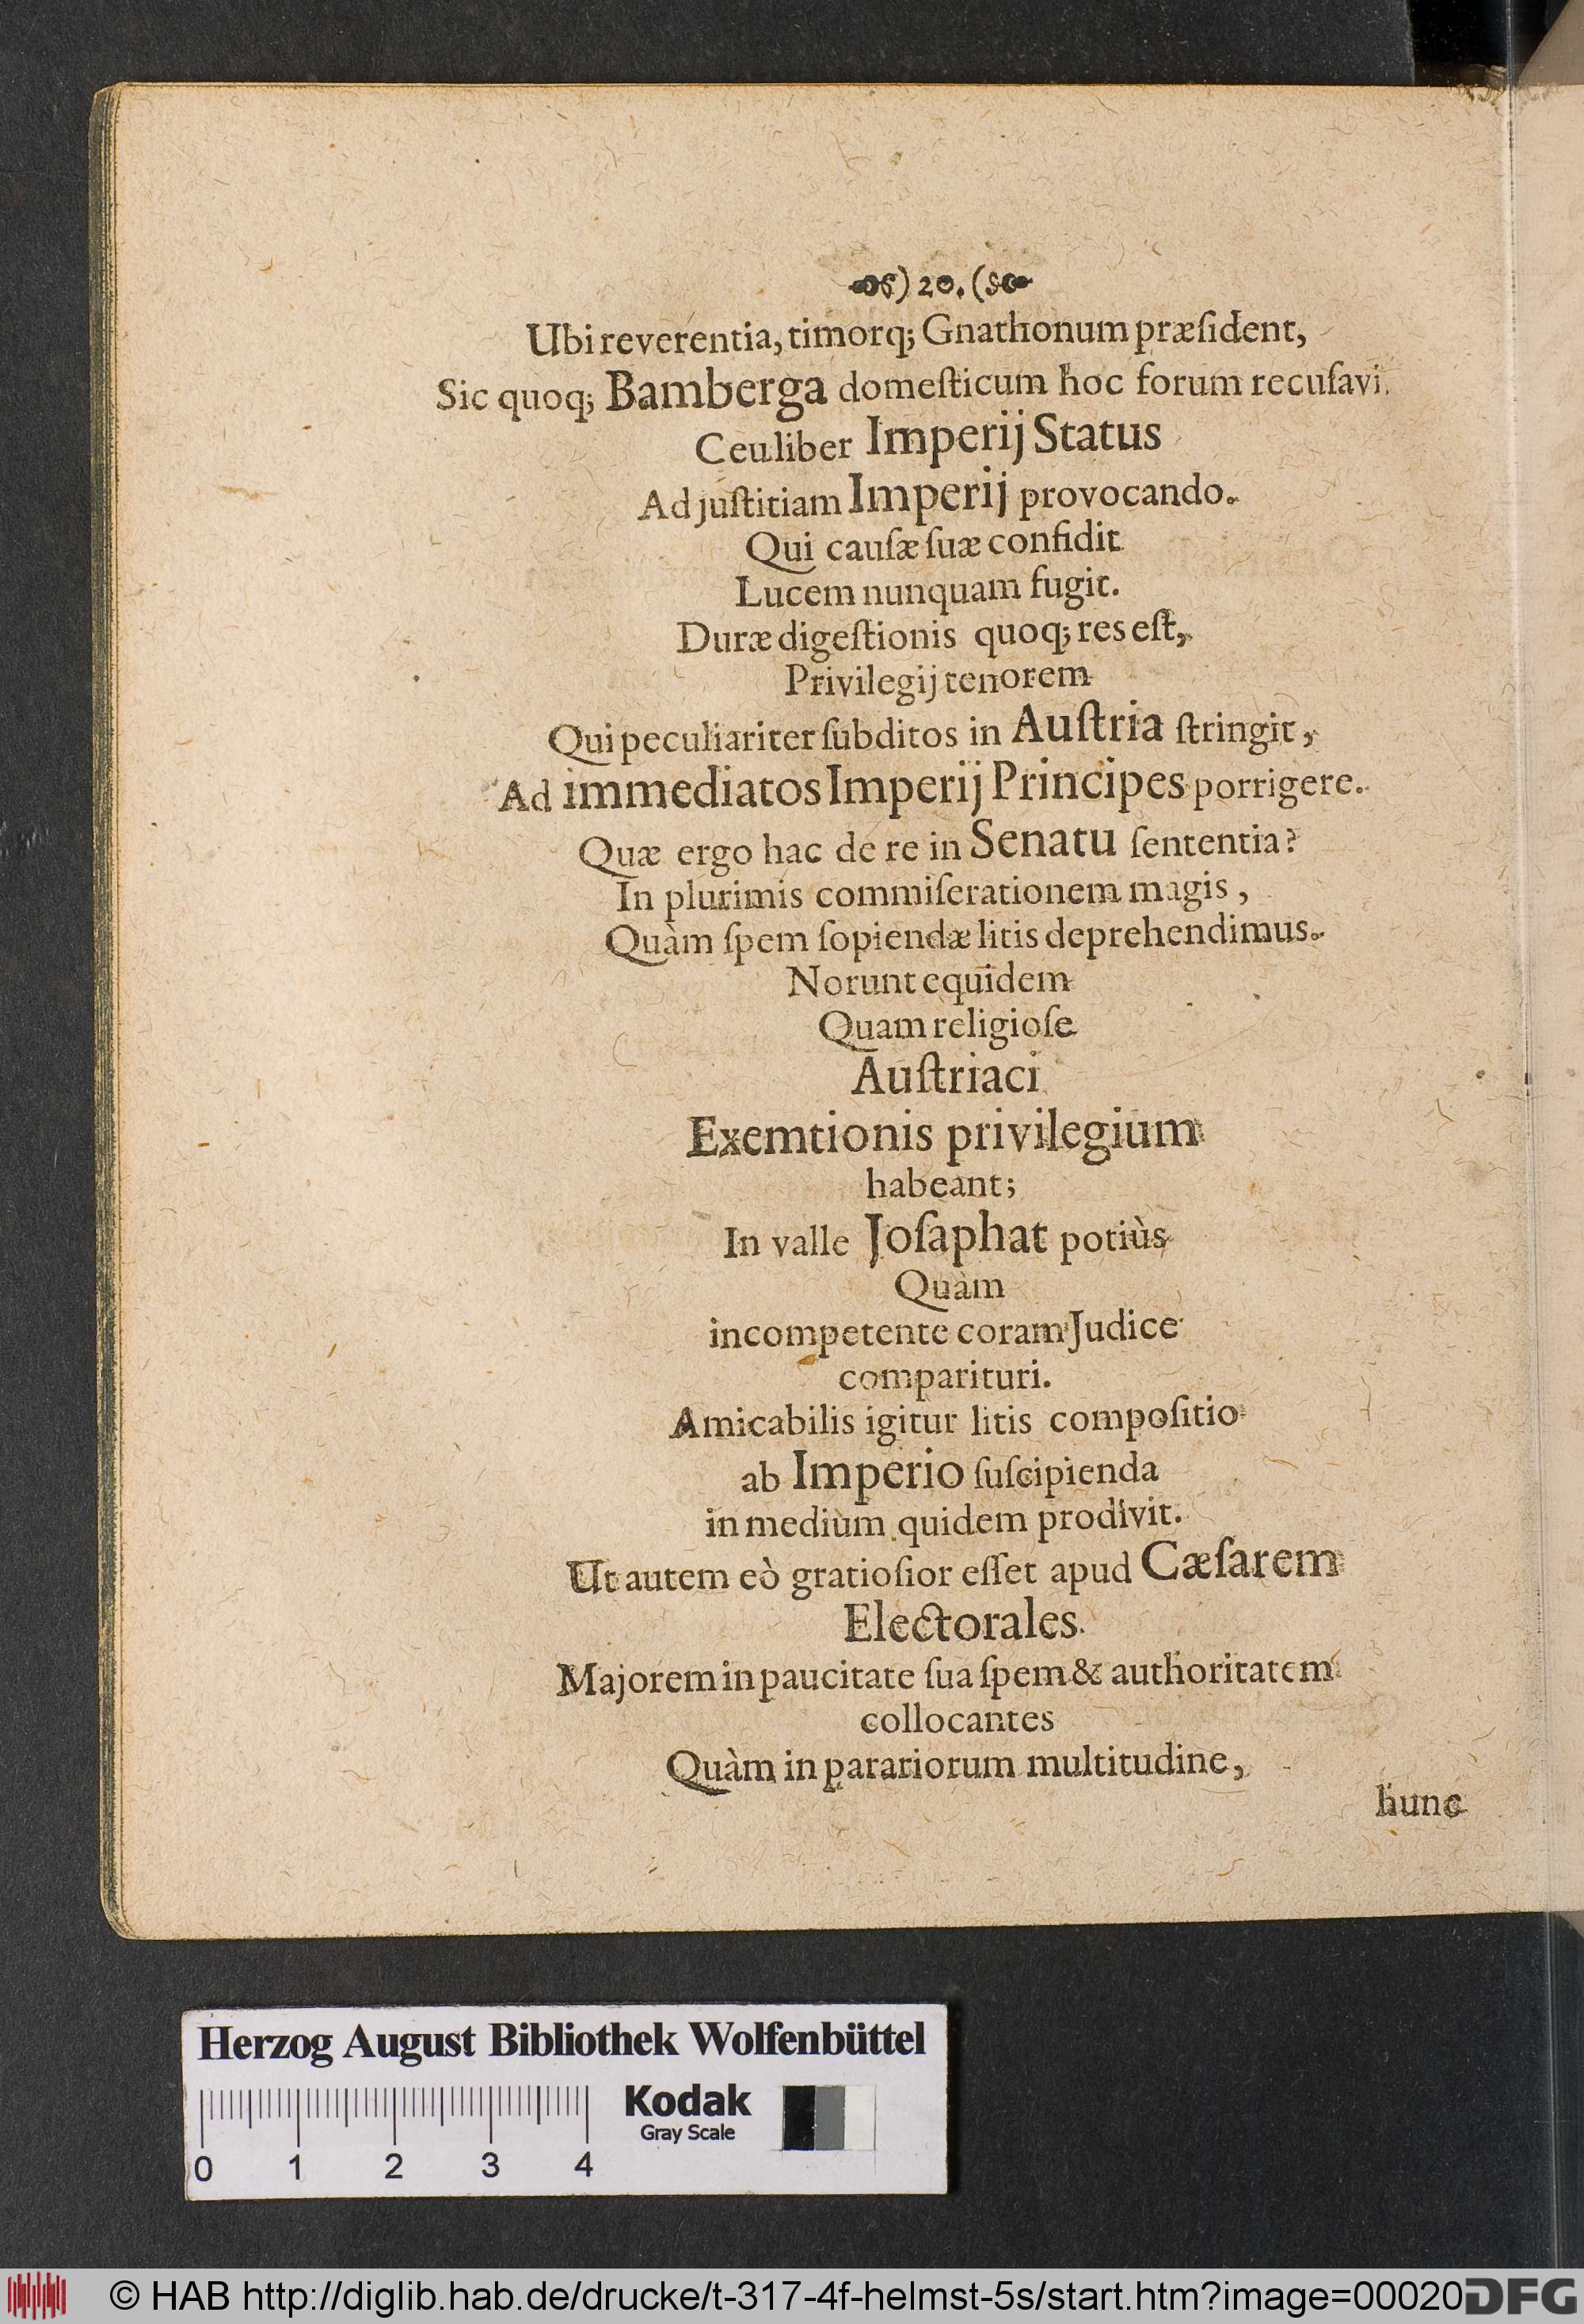 ) 20. (
Ubi reverentia, timorq; Gnathonum præſident,
Sic quoq; Bamberga domeſticum hoc forum recuſavi.
Ceu liber Imperij Status
Ad juſtitiam Imperij provocando.
Qui cauſæ ſuæ confidit
Lucem nunquam fugit.
Duræ digeſtionis quoq; res eſt,
Privilegij tenorem
Qui peculiariter ſubditos in Auſtria ſtringit,
Ad immediatos Imperij Principes porrigere.
Quæ ergo hac de re in Senatu ſententia?
In plurimis commiſerationem magis,
Quàm ſpem ſopiendæ litis deprehendimus.
Norunt equidem
Quam religioſe
Auſtriaci
Exemtionis privilegium
habeant;
In valle Joſaphat potiùs
Quàm
incompetente coram Judice
comparituri.
Amicabilis igitur litis compoſitio
ab Imperio ſuſcipienda
in medium quidem prodivit.
Ut autem eò gratioſior eſſet apud Cæſarem
Electorales
Majorem in paucitate ſua ſpem & authoritatem
collocantes
Quàm in parariorum multitudine,
hunc
Herzog August Bibliothek Wolfenbüttel
Kodak
Gray Scale
0 1 2 3 4
© HAB http://diglib.hab.de/drucke/t-317-4f-helmst-5s/start.htm?image=00020 DFG